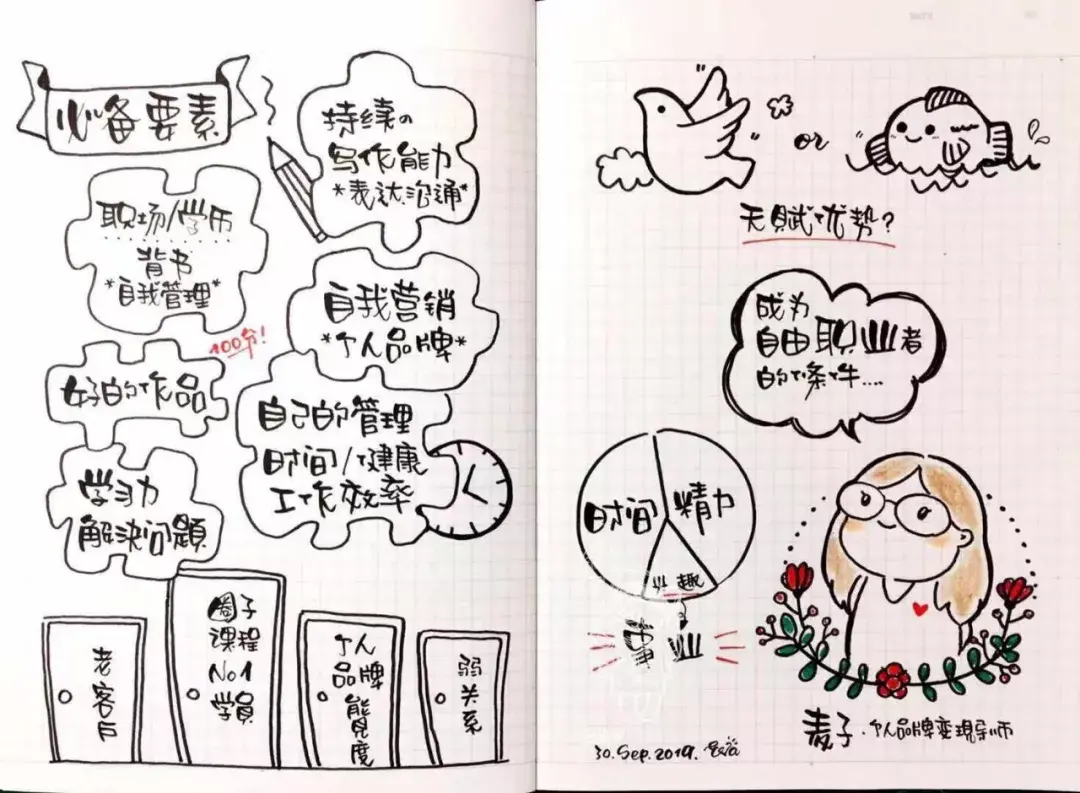 必备要素
持续の
写作能力
*表达沟通*
职场/学历
背书
*自我管理*
自我营销
*个人品牌*
100分!
好的作品
自己的管理
时间/健康
工作效率
学习力
解决问题
老客户
圈子
课程
No1
学員
个人
品牌
能見度
弱关系
or
天賦优势?
成为
自由职业者
的條件....
时间
精力
兴趣
事业
麦子.个人品牌变現导师
30.Sep.2019.